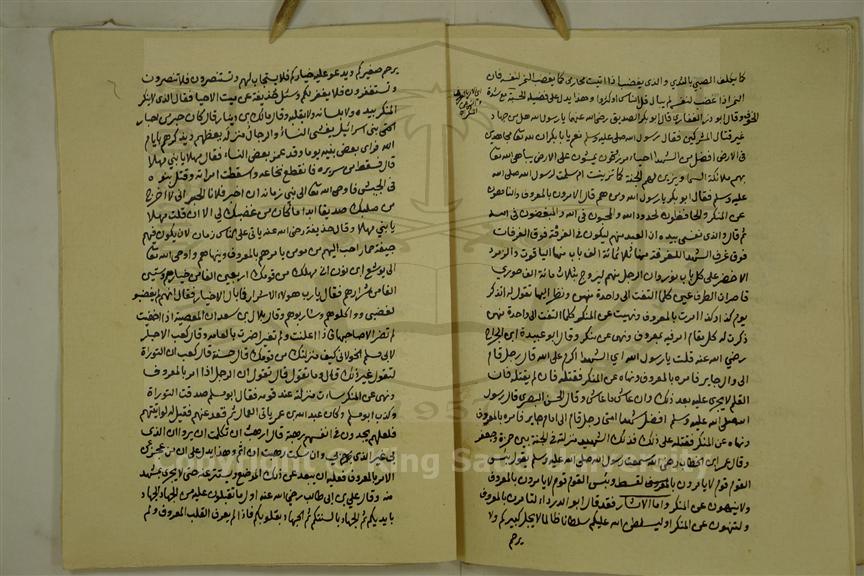 كما يكلف الصبي بالثدي والذي يغضب اذا اتيت محارمي كما يغضب النمر لنفسه فان
النمر اذا غضب لنفسه لم يبال قل الناس ام كثروا وهذا يدل على فضيلة الحسبة مع شدة
الخوف وقال ابو ذر الغفاري قال ابو بكر الصديق رضي الله عنهما يا رسول الله هل من جهاد
غير قتال المشركين فقال رسول الله صلى عليه وسلم نعم يا ابا بكر ان لله تعا مجاهدين
في الارض افضل من الشهدا احيا مرزوقون يمشون على الارض يباهي الله تعا
بهم ملائكة السما وتزين لهم الجنة كما تزينت ام سلمة لرسول الله صلى الله
عليه وسلم فقال ابو بكر يا رسول الله ومن هم قال الامرون بالمعروف والناهون
عن المنكر والحافظون لحدود الله والمحبون في الله والمبغضون في الله
ثم قال والذي نفسي بيده ان العبد منهم ليكون في الغرفة فوق الغرفات
فوق غرف الشهدا للغرفة منها ثلاثمائة الف باب منها الياقوت والزمرد
الاخضر على كل باب نور وان الرجل منهم ليزوج بثلاثمائة الف حوري
قاصرات الطرف عين كلما التفت الى واحدة منهن ونظر اليها تقول له اتذكر
يوم كذا وكذا امرت بالمعروف ونهيت عن المنكر كلما التفت الى واحدة منهن
ذكرت له كل مقام امر فيه بمعروف ونهى عن منكر وقال ابو عبيدة ابن الجراح
رضي الله عنه قلت يا رسول الله اي الشهدا اكرم على الله قال رجل قام
الى وال جاير فامره بالمعروف ونهاه عن المنكر فقتله فان لم يقتله فان
القلم لا يجري عليه بعد ذلك وان عاش ما عاش وقال الحسن البصري قال رسول
الله صلى الله عليه وسلم افضل شهدا امتي رجل قام الى امام جاير فامره بالمعروف
ونهاه عن المنكر فقتله على ذلك فذلك الشهيد منزلته في الجنة بين حمزة وجعفر
وقال عمر ابن الخطاب رضي الله عنه سمعت رسول الله صلى الله عليه وسلم يقول بئس
القوم قوم لا يامرون بالقسط وبئس القوم قوم لا يامرون بالمعروف
ولا ينهون عن المنكر واما الاثار فقد قال ابو الدرداء لتامرن بالمعروف
ولتنهون عن المنكر او ليسلطن الله عليكم سلطانا ظالما لا يجل كبيركم ولا
يرحم
يرحم صغيركم ويدعو عليه خياركم فلا يستجاب لهم وتستنصرون فلا تنصرون
وتستغفرون فلا يغفر لكم وسئل حذيفة عن ميت الاحيا فقال الذي لا ينكر
المنكر بيده ولا بلسانه ولا بقلبه وقال مالك بن دينار كان حبر من احبار
بني اسرائيل يغشى النساء والرجال منزله يعظهم ويذكرهم بايام
الله فراى بعض بنيه يوما وقد غمز بعض النساء فقال مهلا يا بني مهلا
قال فسقط من سريره فانقطع نخاعه وسقطت امراته وقتل بنوه
في الجيش فاوحى الله تعا الى نبي زمانه ان اخبر فلانا الحبر اني لا اخرج
من صلبك صديقا ابدا ما كان من غضبك لي الا ان قلت مهلا
يا بني مهلا وقال حذيفة رضي الله عنه ياتي على الناس زمان لان يكون فيهم
جيفة حمار احب اليهم من مومن يامرهم بالمعروف وينهاهم واوحى الله تعا
الى يوشع ابن نون اني مهلك من قومك اربعين الفا من خيارهم وستين
الفا من شرارهم فقال يا رب هولاء الاشرار فما بال الاخيار فقال انهم لم يغضبو
لغضبي وواكلوهم وشاربوهم وقال بلال بن سعد ان المعصية اذا اخفيت
لم تضر الا صاحبها فاذا اعلنت ولم تغير اضرت بالعامة وقال كعب الاحبار
لابي مسلم الخولاني كيف منزلتك من قومك قال حسنة قال كعب ان التوراة
لتقول غير ذلك قال وما تقول قال تقول ان الرجل اذا امر بالمعروف
ونهى عن المنكر ساءت منزلته عند قومه فقال ابو مسلم صدقت التوراة
وكذب ابو مسلم وكان عبد الله بن عمر ياتي العمال ثم قعد عنهم فقيل له لو اتيتهم
فلعلهم يجدون في انفسهم رهبة قال ارهب ان تكلمت ان يروا ان الذي
بي غير الذي بي وان سكت رهبت ان اثم وهذا يدل على ان من عجز عن
الامر بالمعروف فعليه ان يبعد عن ذلك الموضع ويستتر عنه حتى لا يجري بمشهد
منه وقال علي بن ابي طالب رضي الله عنه اول ما تغلبون عليه من الجهاد الجهاد
بايديكم ثم الجهاد بالسنتكم ثم الجهاد بقلوبكم فاذا لم يعرف القلب المعروف ولم
Copyright © King Saud University
1957